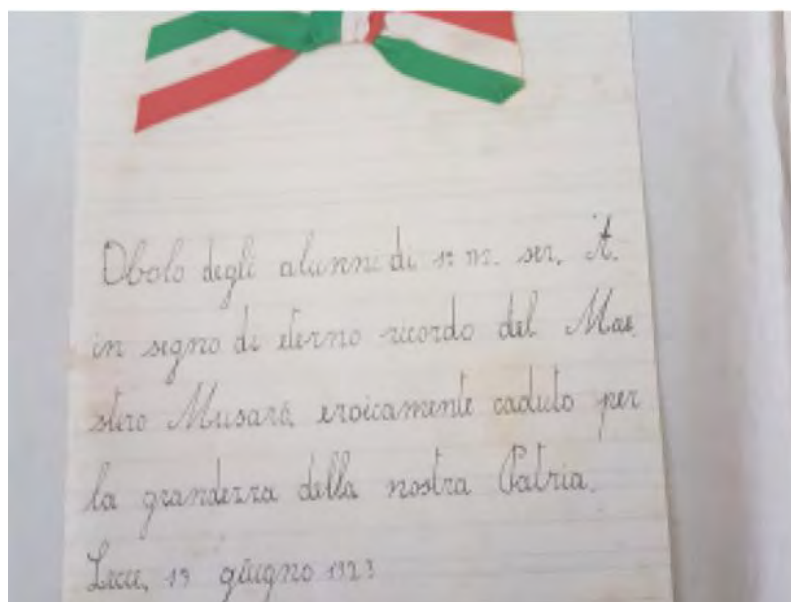 Obolo degli alunni di 1ª m. sez. A.
in segno di eterno ricordo del Mae
stro Musarò, eroicamente caduto per
la grandezza della nostra Patria.
Lecce, 19 giugno 1923